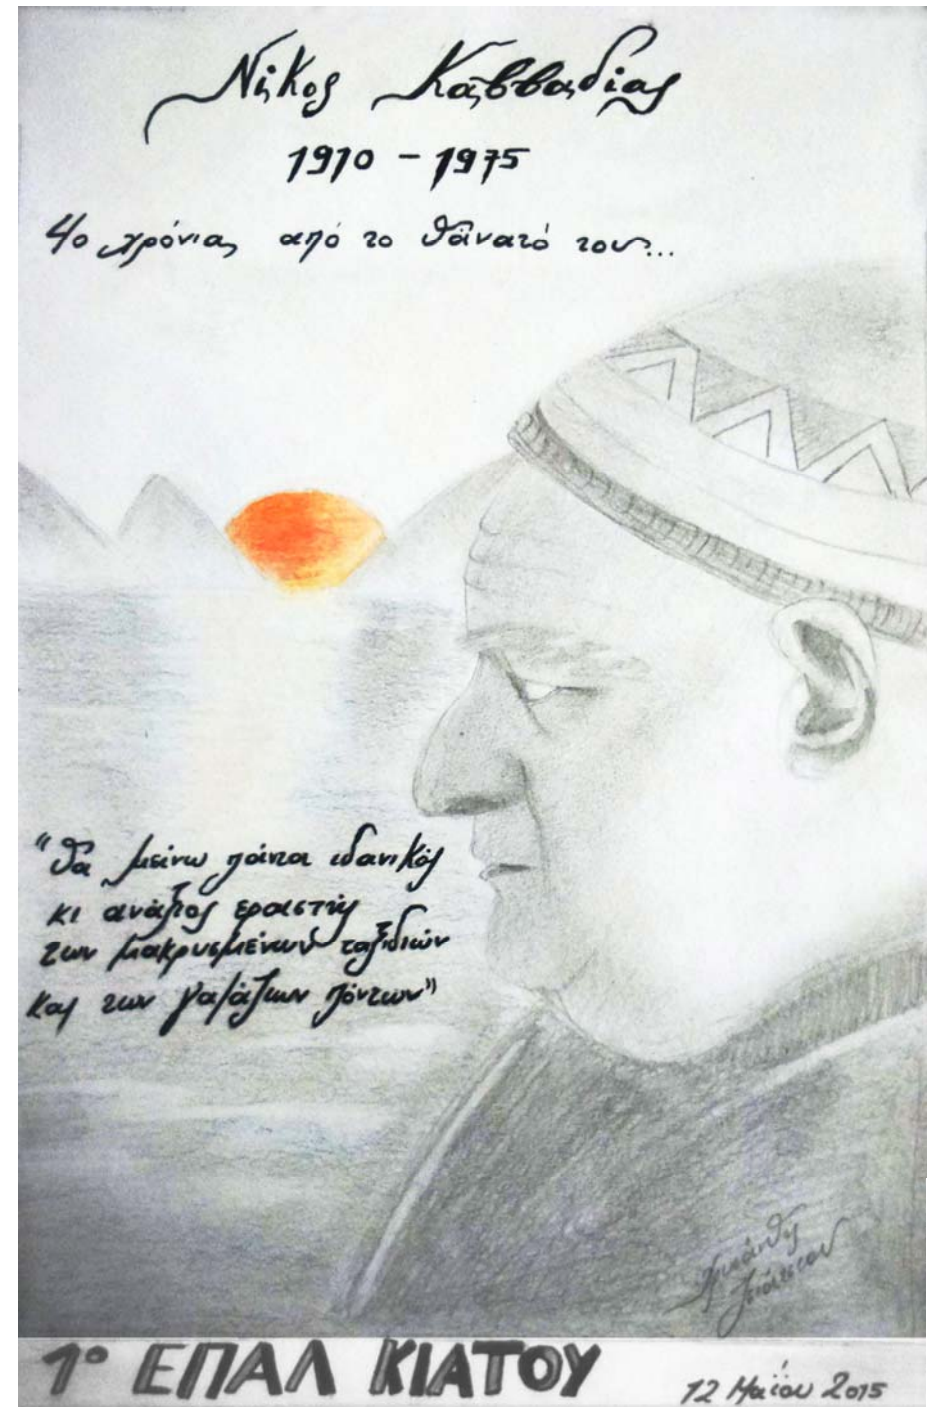 Νίκος Καββαδίας
1910 - 1975
40 χρόνια από το θάνατό του...
"Θα μείνω πάντα ιδανικός
κι ανάξιος εραστής
των μακρυσμένων ταξιδιών
και των γαλάζιων πόντων"
1ο ΕΠΑΛ ΚΙΑΤΟΥ
12 Μαΐου 2015